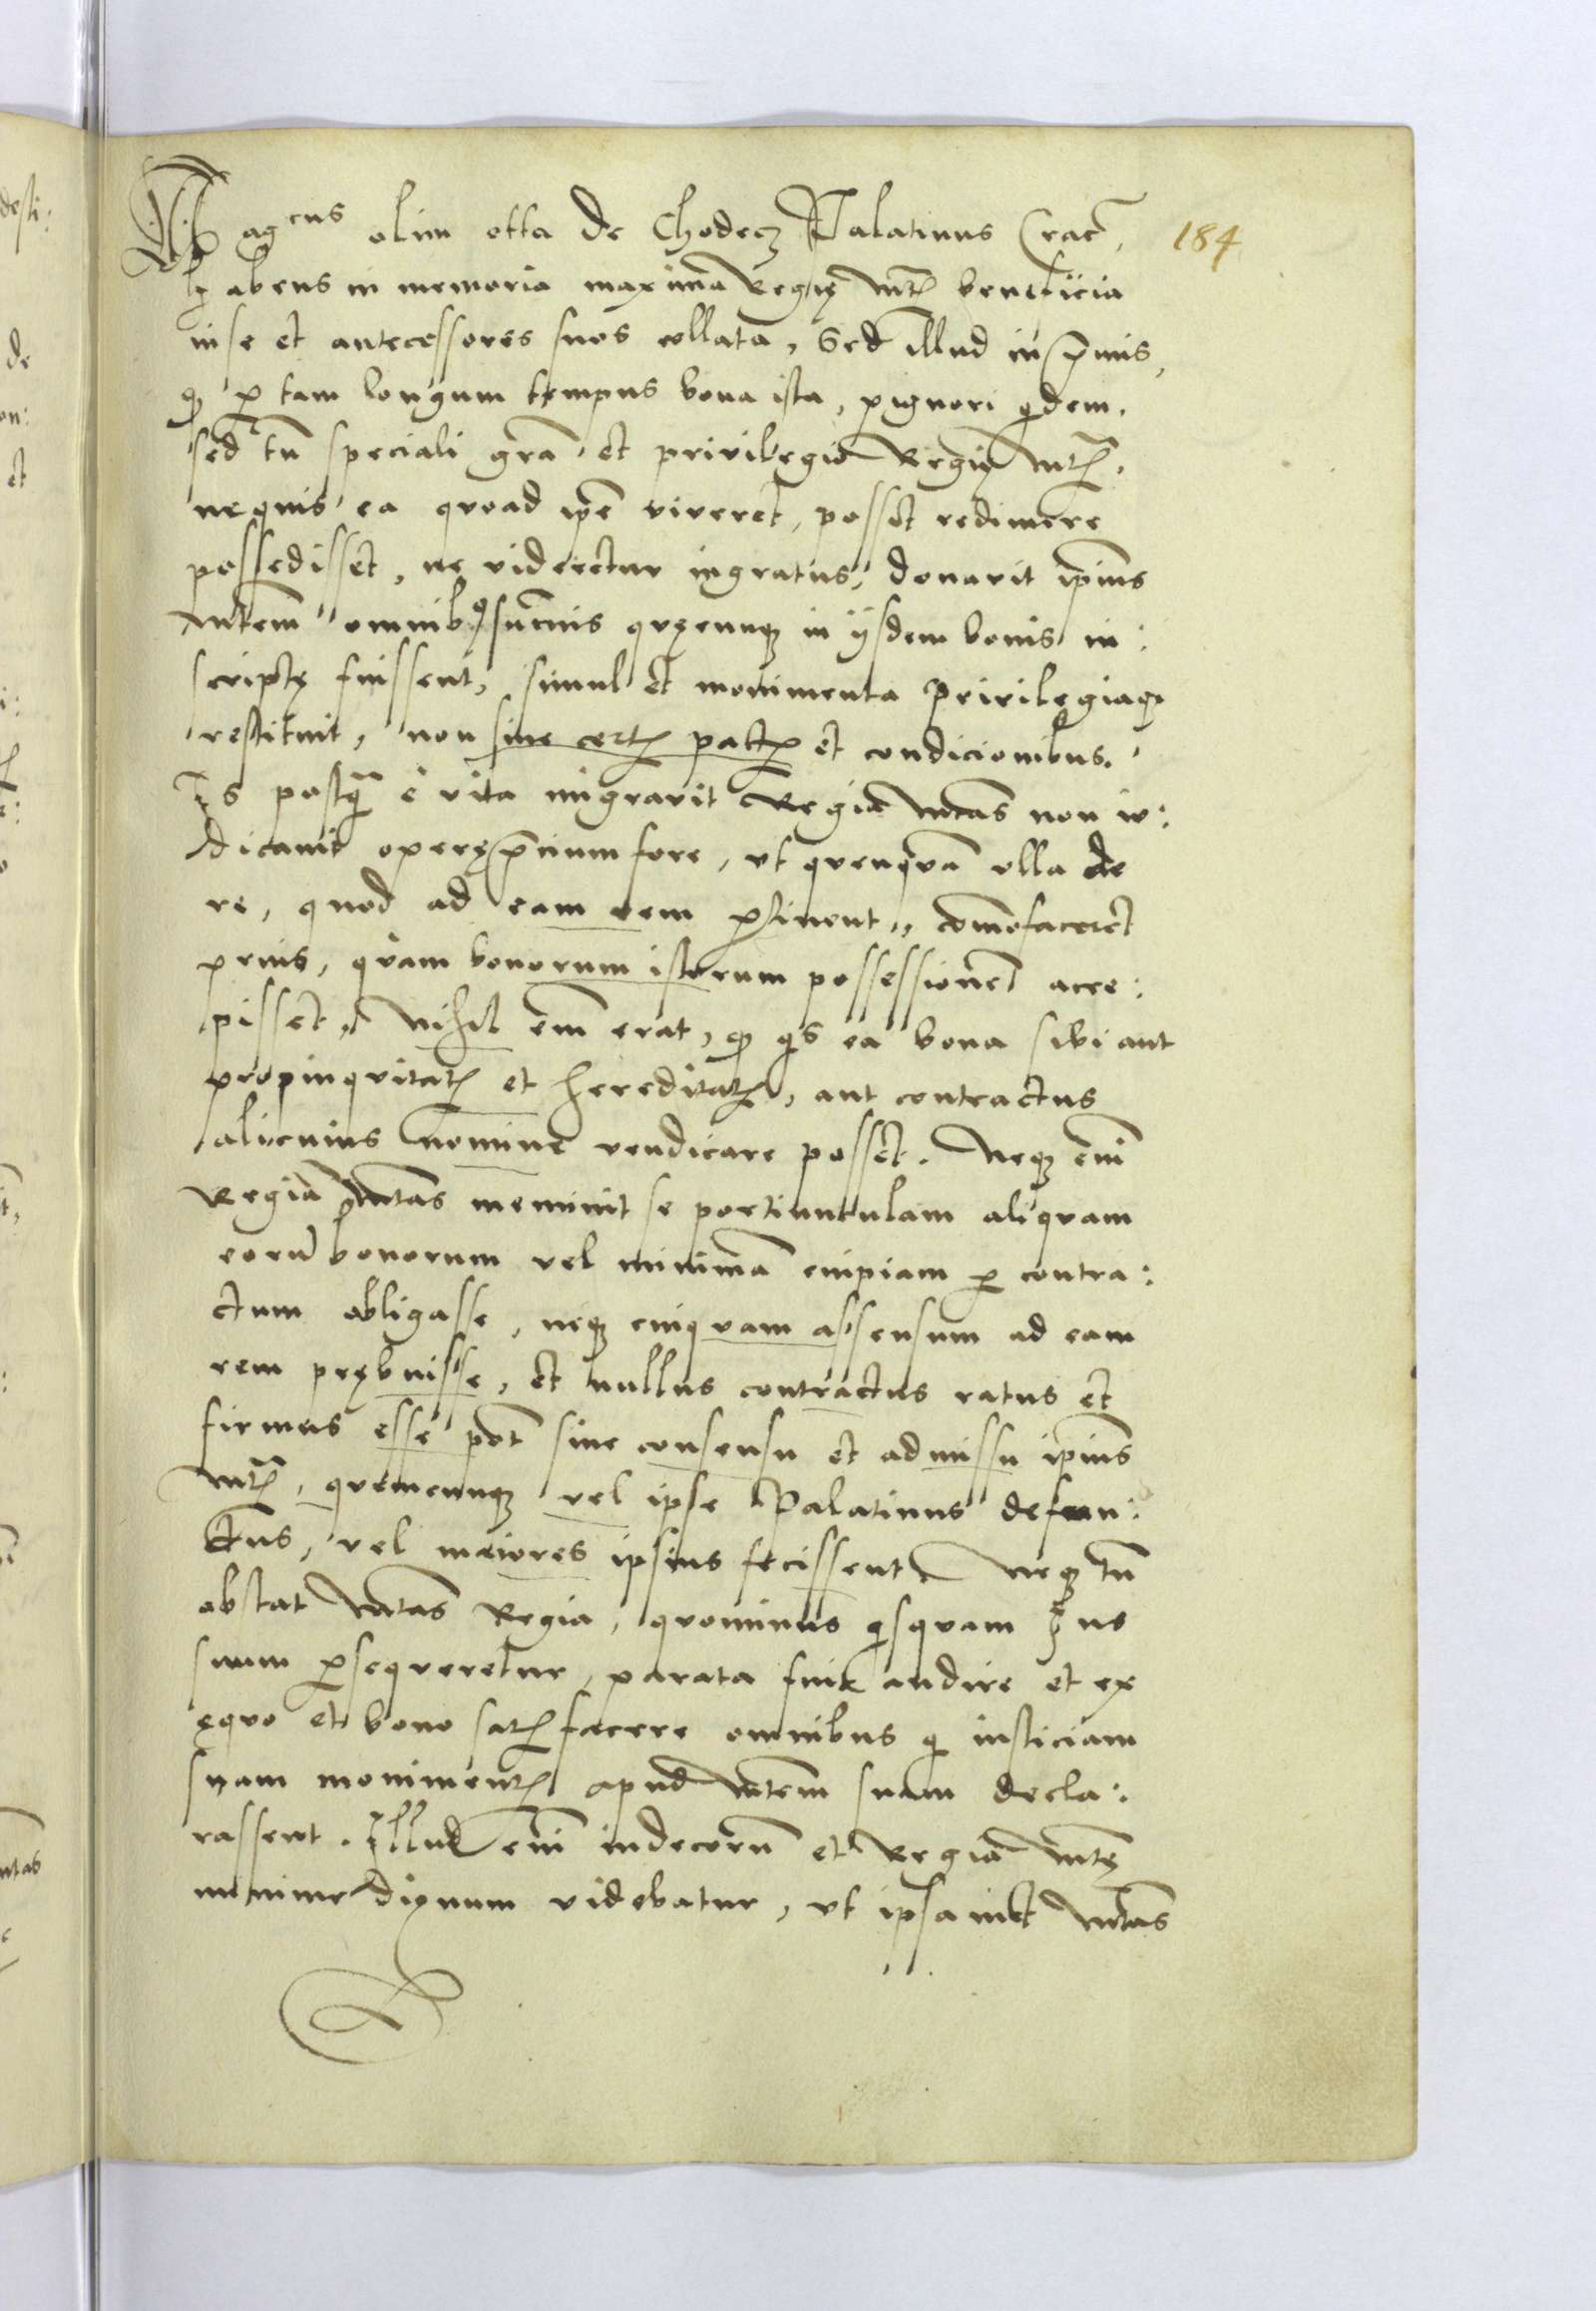 Magcus olim otta de Chodecz Palatinus Crac̄, 184
habens in memoria maxima Regię mtꝭ beneficia
in se et antecessores suos collata, Sed illud in p̄mis,
qꝫ ꝑ tam longum tempus bona ista, pignori qͥdem,
sed tn̄ speciali gr̄a et privilegio Regię mtꝭ,
ne quis ea quoad ip̄e viveret, posset redimere
possedisset, ne videretur ingratus, donavit ip̄ius
mtem̄ omnibꝰ sum̄is quęcunqꝫ in ijsdem bonis in:
scriptę fuissent, simul et monimenta privilegiaqꝫ
restituit, non sine certꝭ pactꝭ et condicionibus.
Is postqꝫ̄ e vita migravit Regia mtas̄ non iu:
dicavit operęp̄cium fore, ut quenquā ulla de
re, quod ad eam rem ꝑtinent, com̄ofaceret
prius, quam bonorum istorum possessionē acce:
pisset, Nihil em̄ erat, qꝫ qͥs ea bona sibi aut
propinquitatꝭ et hereditatꝭ, aut contractus
alicuius nomine vendicare posset. Neqꝫ em̄
Regia mtas̄ meminit se portiunculam aliquam
eorū bonorum vel minimā cuipiam ꝑ contra:
ctum obligasse, neqꝫ cuiquam assensum ad eam
rem prębuisse, et nullus contractus ratus et
firmus esse pot̄ sine consensu et admissu ipius̄
mtꝭ, quemcunqꝫ vel ipse Palatinus defun:
ctus, vel maiores ipsius fecissent, Neqꝫ tn̄
obstat mtas̄ Regia, quominus qͥsquam Ius
suum ꝑsequeretur, parata fuit audire et ex
ęquo et bono satꝭfacere omnibus qͥ iusticiam
suam monimentꝭ apud mtem̄ suam decla:
rassent. Illud em̄ indecorū et Regia mtę
minime dignum videbatur, ut ipsamet mtas̄